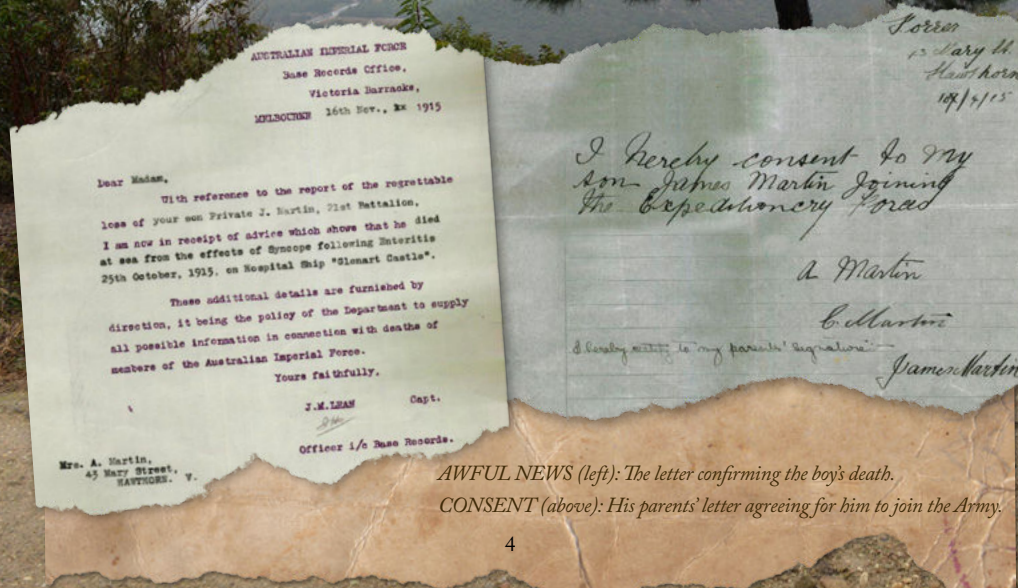 AUSTRALIAN IMPERIAL FORCE
Base Records Office,
Victoria Barracks,
MELBOURNE 16th Nov., xx 1915
Dear Madam,
With reference to the report of the regrettable
loss of your son Private J. Martin, 21st Battalion,
I am now in receipt of advice which shows that he died
at sea from the effects of Syncope following Enteritis
25th October, 1915, on Hospital Ship "Glenart Castle".
These additional details are furnished by
direction, it being the policy of the Department to supply
all possible information in connection with deaths of
members of the Australian Imperial Force.
Yours faithfully,
J.M.LEAN Capt.
Officer i/c Base Records.
Mrs. A. Martin,
43 Mary Street,
HAWTHORN. V.
Mary St.
Hawthorn
/4/15
I hereby consent to my
son James Martin Joining
the Expeditioncry Forces
A Martin
C. Martin
I hereby to my parents' signature
James Martin
AWFUL NEWS (left): The letter confirming the boy's death.
CONSENT (above): His parents' letter agreeing for him to join the Army.
4